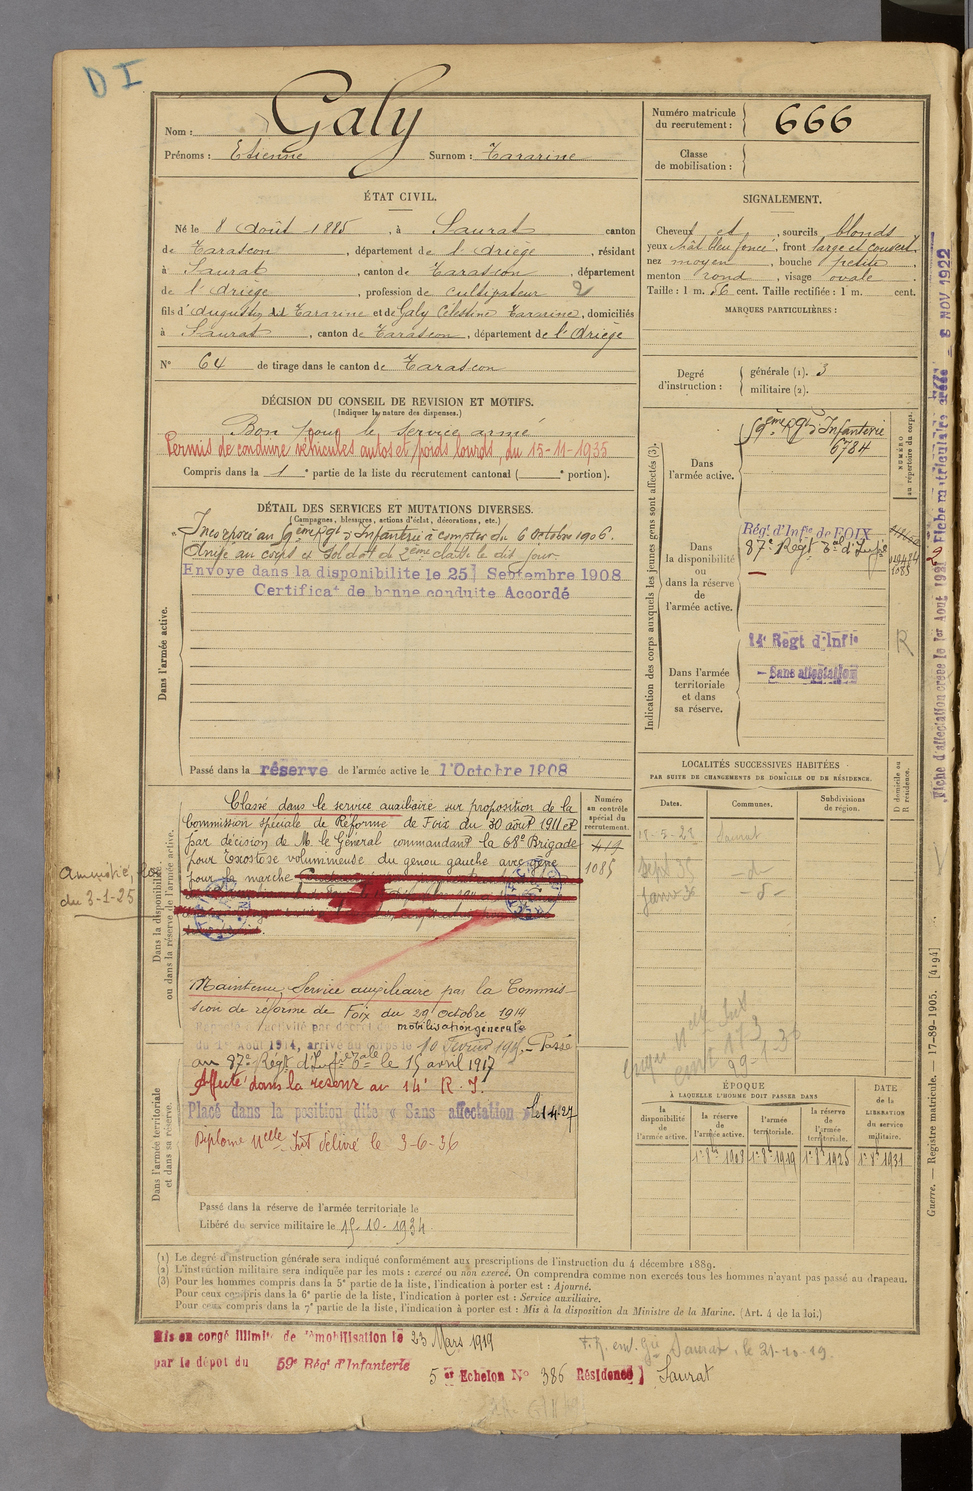 D I
Nom : Galy
Prénoms : Etienne Surnom : Tararine
Numéro matricule
du recrutement : 666
Classe
de mobilisation :
ÉTAT CIVIL.
Né le 8 Août 1885, à Saurat canton
de Tarascon, département de l'Ariège, résidant
à Saurat, canton de Tarascon, département
de l'Ariège, profession de cultivateur 2
fils d'Augustin dit Tararine et de Galy Célestine Tararine, domiciliés
à Saurat, canton de Tarascon, département de l'Ariège
N° 64 de tirage dans le canton de Tarascon
SIGNALEMENT.
Cheveux et, sourcils blonds
yeux chât bleu foncé, front large et couvert,
nez moyen, bouche petite,
menton rond, visage ovale.
Taille : 1 m. 56 cent. Taille rectifiée : 1 m. cent.
MARQUES PARTICULIÈRES :
Degré
d'instruction :
générale (1). 3
militaire (2).
DÉCISION DU CONSEIL DE REVISION ET MOTIFS.
(Indiquer la nature des dispenses.)
Bon pour le service armé
Permis de conduire véhicules autos et poids lourds, du 15-11-1935
Compris dans la 1e partie de la liste du recrutement cantonal ( e portion).
DÉTAIL DES SERVICES ET MUTATIONS DIVERSES.
(Campagnes, blessures, actions d'éclat, décorations, etc.)
Dans l'armée active.
Incorporé au 59ème Rgt d'Infanterie à compter du 6 Octobre 1906.
Arrivé au corps et soldat de 2ème classe le dit jour.
Envoyé dans la disponibilité le 25 Septembre 1908
Certificat de bonne conduite Accordé
Passé dans la réserve de l'armée active le 1er Octobre 1908
Indication des corps auxquels les jeunes gens sont affectés (3).
NUMÉRO
au répertoire du corps.
Dans
l'armée active.
59ème Rgt d'Infanterie
6784
Dans
la disponibilité
ou
dans la réserve
de
l'armée active.
Régt d'Infie de FOIX
87e Régt Tal d'Infie
1085
Dans l'armée
territoriale
et dans
sa réserve.
14e Régt d'Infie
– Sans affectation
R
Fiche d'affectation créée le 1er Août 1931
Fiche matriculaire créée – 8 NOV 1922
LOCALITÉS SUCCESSIVES HABITÉES
PAR SUITE DE CHANGEMENTS DE DOMICILE OU DE RÉSIDENCE.
Dates.
Communes.
Subdivisions
de région.
D domicile ou
R résidence.
18-5-23 Saurat
Sept 35 – d –
Janv 36 – d –
Dans la disponibilité
ou dans la réserve de l'armée active.
Numéro
au contrôle
spécial du
recrutement.
419
1085
Classé dans le service auxiliaire sur proposition de la
Commission spéciale de Réforme de Foix du 30 août 1911 et
par décision de M. le Général commandant la 68e Brigade
pour Exostose volumineuse du genou gauche avec gêne
pour la marche
Amnistié, Loi
du 3-1-25
Maintenu Service auxiliaire par la Commis
sion de réforme de Foix du 29 octobre 1914
Rappelé à l'activité par décret de mobilisation générale
du 1er Août 1914, arrivé au corps le 10 Février 1915. – Passé
au 87e Régt d'Infie Tale le 15 avril 1917
Affecté dans la réserve au 14e R. I.
Placé dans la position dite « Sans affectation » le 1-4-27
Diplôme Nelle Int délivré le 3-6-36
Dans l'armée territoriale
et dans sa réserve.
Passé dans la réserve de l'armée territoriale le
Libéré du service militaire le 15-10-1934
ÉPOQUE
À LAQUELLE L'HOMME DOIT PASSER DANS
DATE
de la
LIBÉRATION
du service
militaire.
la
disponibilité
de
l'armée active.
la réserve
de
l'armée active.
l'armée
territoriale.
la réserve
de
l'armée
territoriale.
1er 8bre 1908 1er 8bre 1919 1er 8bre 1925 1er 8bre 1931
(1) Le degré d'instruction générale sera indiqué conformément aux prescriptions de l'instruction du 4 décembre 1889.
(2) L'instruction militaire sera indiquée par les mots : exercé ou non exercé. On comprendra comme non exercés tous les hommes n'ayant pas passé au drapeau.
(3) Pour les hommes compris dans la 5e partie de la liste, l'indication à porter est : Ajourné.
Pour ceux compris dans la 6e partie de la liste, l'indication à porter est : Service auxiliaire.
Pour ceux compris dans la 7e partie de la liste, l'indication à porter est : Mis à la disposition du Ministre de la Marine. (Art. 4 de la loi.)
Guerre. — Registre matricule. — 17-89-1905. [4194]
Mis en congé illimité de démobilisation le 23 Mars 1919
par le dépôt du 59e Régt d'Infanterie
5 er Echelon N° 386 Résidence ) Saurat
Saurat, le 21-10-19.